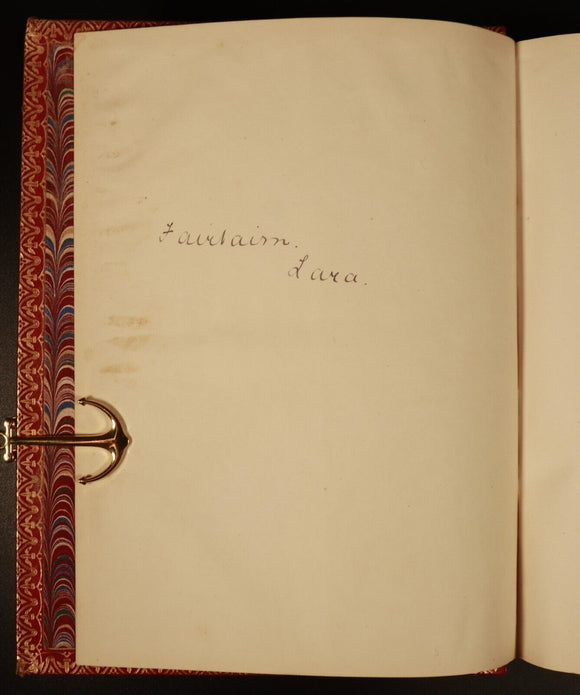 Fairbairn.
Lara.